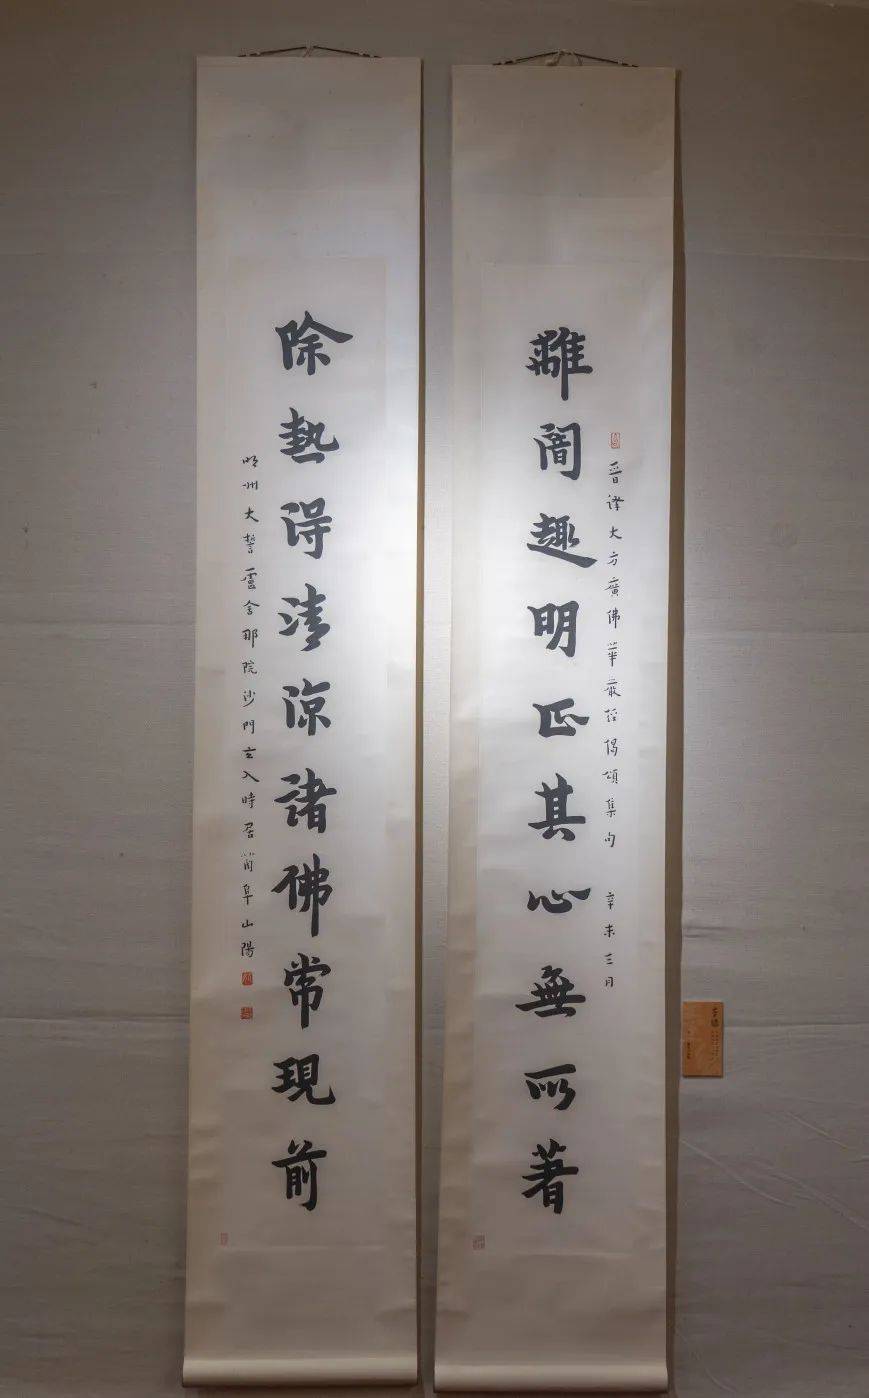 離闇趣明正其心無所著
晉譯大方廣佛華嚴經偈頌集句 辛未三月
除熱得清涼諸佛常現前
明州大誓盧舍那院沙門玄入時居蘭阜山陽